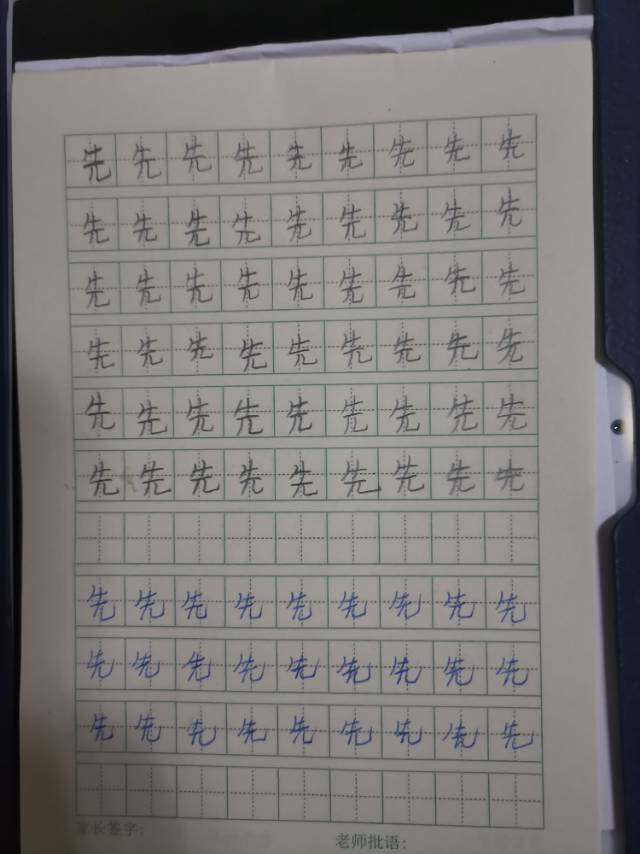 先先先先先先先先先
先先先先先先先先先
先先先先先先先先先
先先先先先先先先先
先先先先先先先先先
先先先先先先先先先
先先先先先先先先先
先先先先先先先先先
先先先先先先先先先
家长签字：
老师批语：